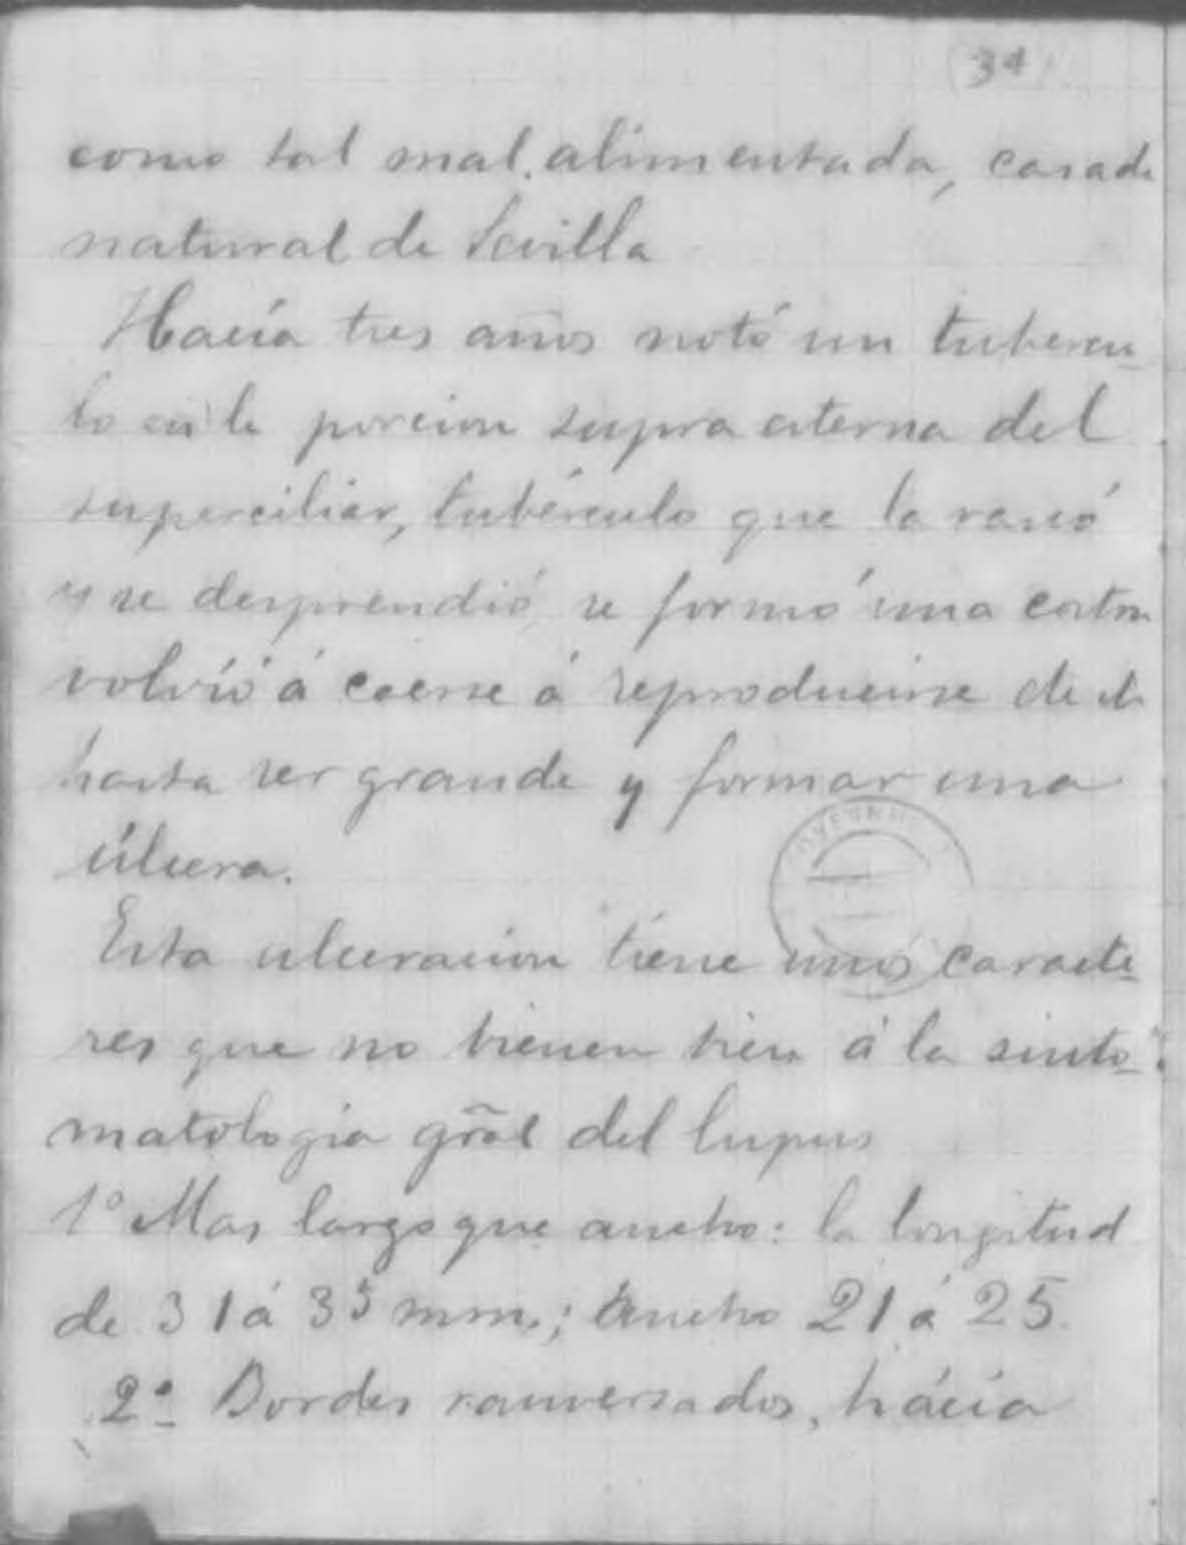 (34)
como tal mal alimentada, casada
natural de Sevilla
Hacía tres años notó un tubercu-
lo en la porcion supra externa del
superciliar, tubérculo que la rascó
y se desprendió, se formó una costra
volvió á caerse á reproducirse
hasta ser grande y formar una
úlcera.
Esta ulceracion tiene unos caracte-
res que no bienen bien á la sinto-
matologia gñal del lupus
1º Mas largo que ancho: la longitud
de 31 á 35 mm.; ancho 21 á 25.
2º Bordes ranversados, hácia